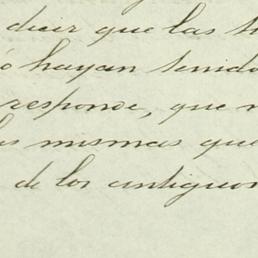 decir que las
ó hayan tenido
responde, que
las mismas que
de los antiguos